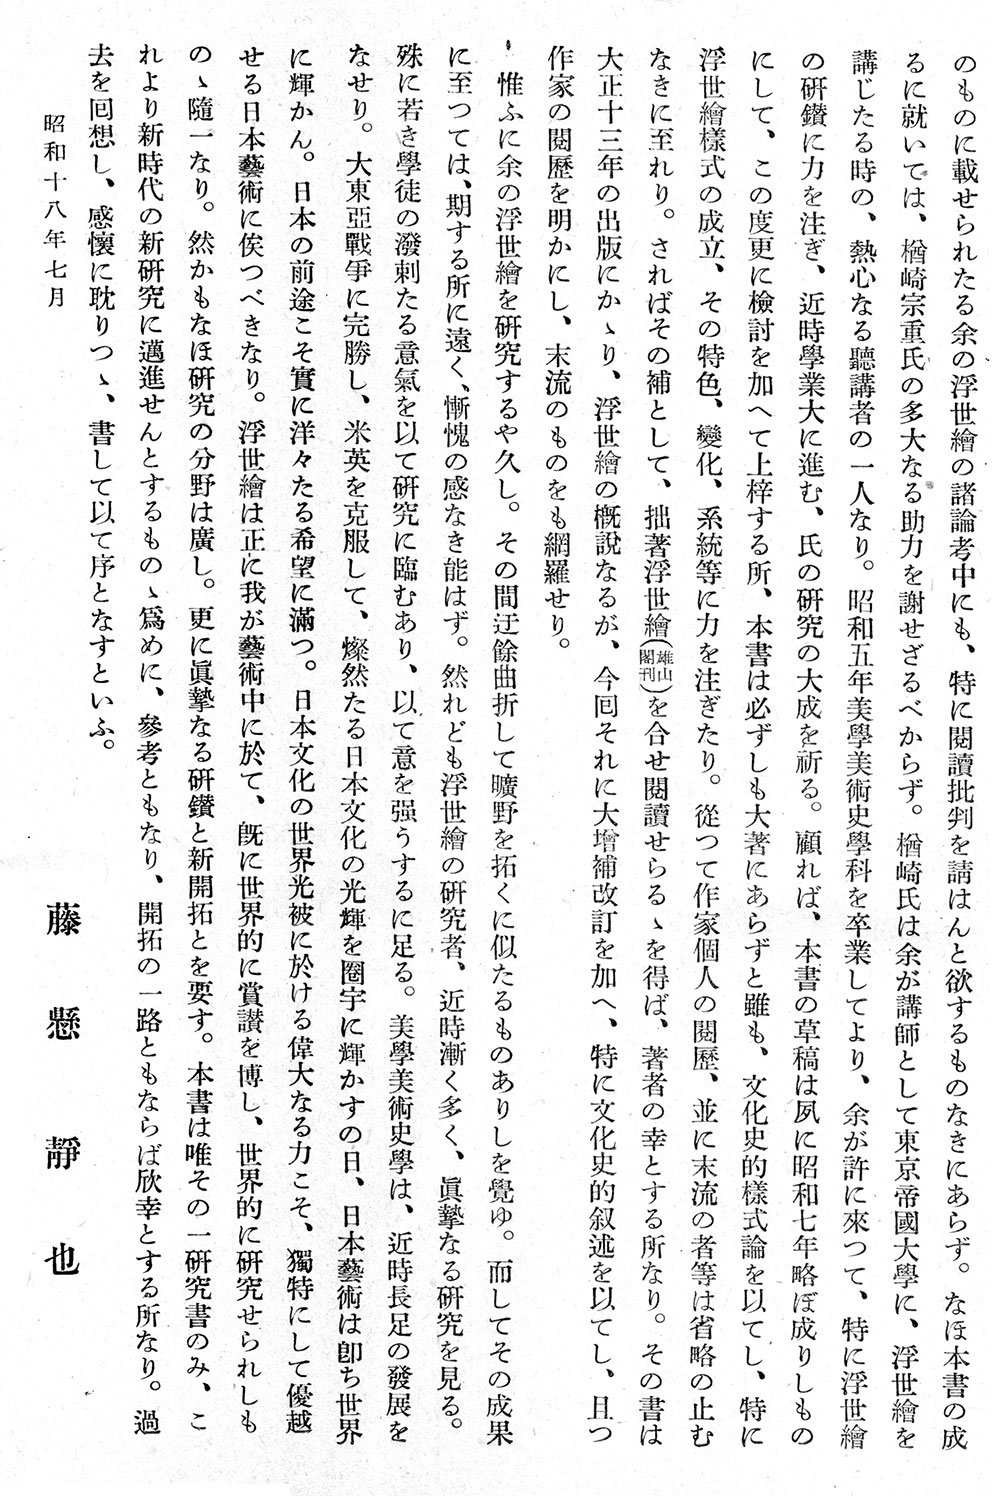 のものに載せられたる余の浮世繪の諸論考中にも、特に閱讀批判を請はんと欲するものなきにあらず。なほ本書の成
るに就いては、楢崎宗重氏の多大なる助力を謝せざるべからず。楢崎氏は余が講師として東京帝國大學に、浮世繪を
講じたる時の、熱心なる聽講者の一人なり。昭和五年美學美術史學科を卒業してより、余が許に來つて、特に浮世繪
の硏鑽に力を注ぎ、近時學業大に進む、氏の硏究の大成を祈る。顧れば、本書の草稿は夙に昭和七年略ぼ成りしもの
にして、この度更に檢討を加へて上梓する所、本書は必ずしも大著にあらずと雖も、文化史的樣式論を以てし、特に
浮世繪樣式の成立、その特色、變化、系統等に力を注ぎたり。從つて作家個人の閱歷、並に末流の者等は省略の止む
なきに至れり。さればその補として、拙著浮世繪(雄山閣刊)を合せ閱讀せらるゝを得ば、著者の幸とする所なり。その書は
大正十三年の出版にかゝり、浮世繪の槪說なるが、今囘それに大增補改訂を加へ、特に文化史的叙述を以てし、且つ
作家の閱歷を明かにし、末流のものをも網羅せり。
惟ふに余の浮世繪を硏究するや久し。その間迂餘曲折して曠野を拓くに似たるものありしを覺ゆ。而してその成果
に至つては、期する所に遠く、慚愧の感なき能はず。然れども浮世繪の硏究者、近時漸く多く、眞摯なる硏究を見る。
殊に若き學徒の潑剌たる意氣を以て硏究に臨むあり、以て意を强うするに足る。美學美術史學は、近時長足の發展を
なせり。大東亞戰爭に完勝し、米英を克服して、燦然たる日本文化の光輝を圈宇に輝かすの日、日本藝術は卽ち世界
に輝かん。日本の前途こそ實に洋々たる希望に滿つ。日本文化の世界光被に於ける偉大なる力こそ、獨特にして優越
せる日本藝術に俟つべきなり。浮世繪は正に我が藝術中に於て、旣に世界的に賞讃を博し、世界的に硏究せられしも
のゝ隨一なり。然かもなほ硏究の分野は廣し。更に眞摯なる硏鑽と新開拓とを要す。本書は唯その一硏究書のみ、こ
れより新時代の新硏究に邁進せんとするものゝ爲めに、參考ともなり、開拓の一路ともならば欣幸とする所なり。過
去を囘想し、感懷に耽りつゝ、書して以て序となすといふ。
昭和十八年七月
藤懸靜也